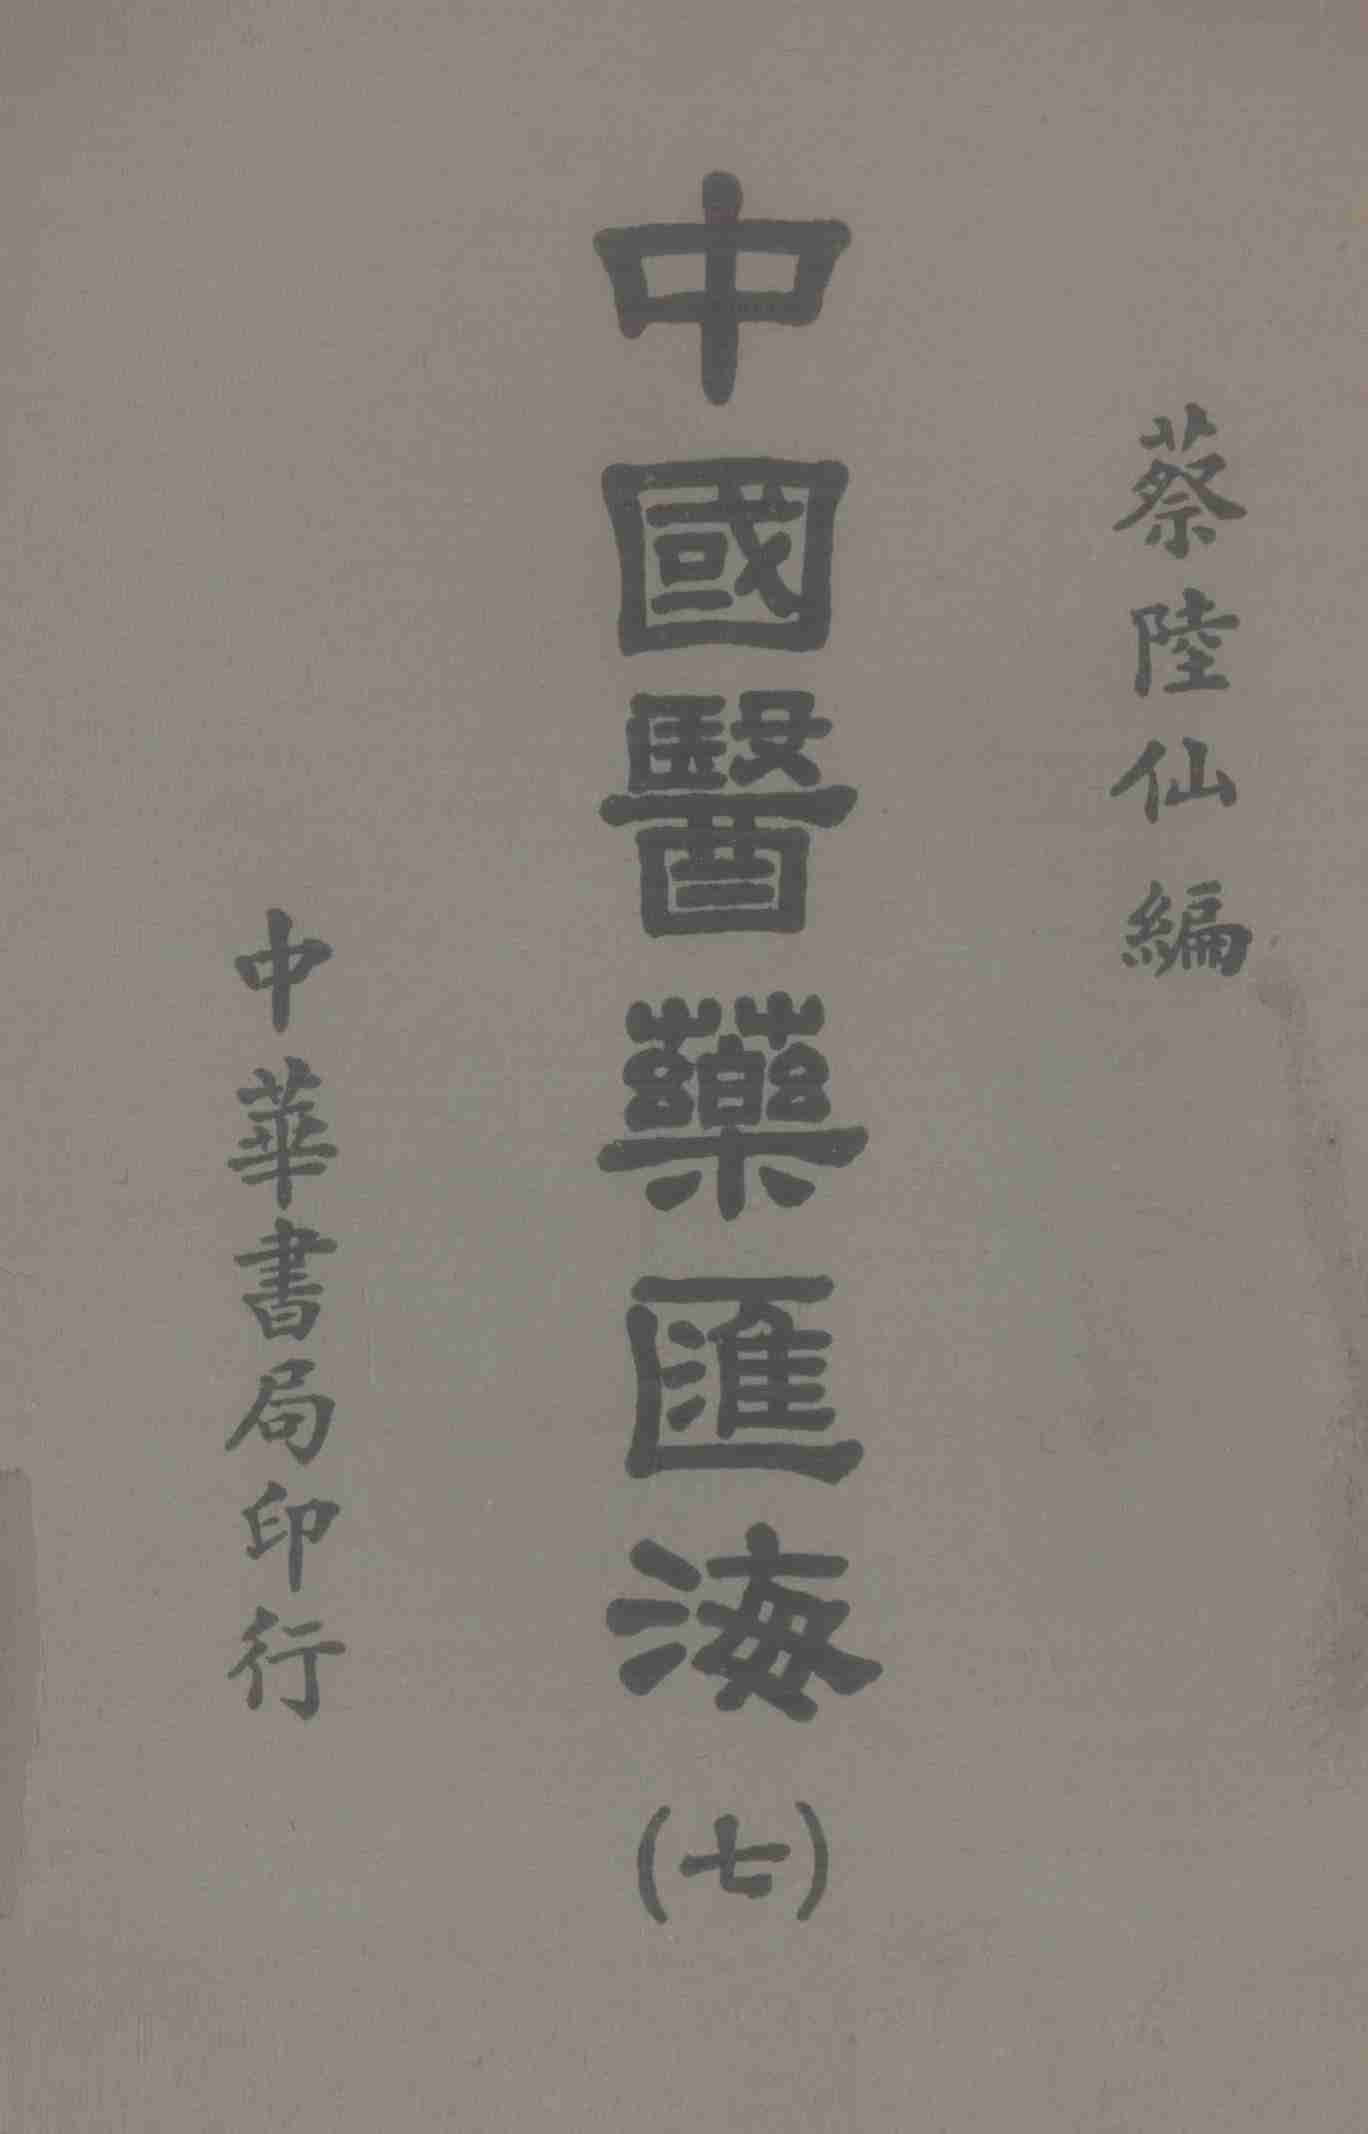 蔡陸仙編
中國醫藥匯海(七)
中華書局印行